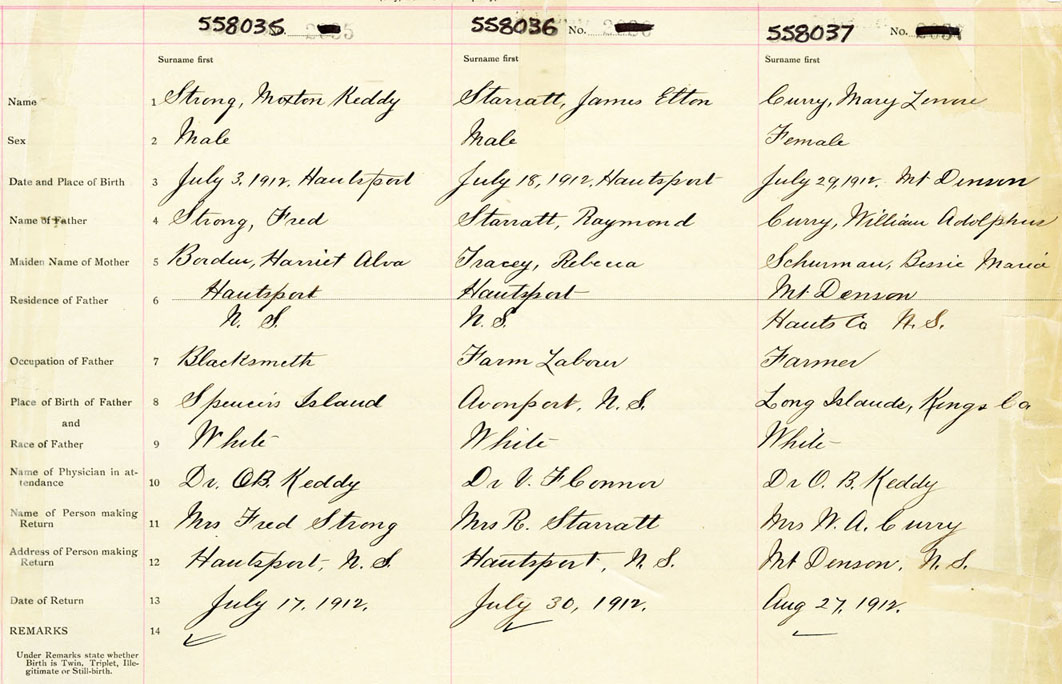 558035 No. 2035
558036 No. 2036
558037 No. 2037
Surname first Surname first Surname first
Name 1 Strong, Moxton Keddy Starratt, James Elton Curry, Mary Lenore
Sex 2 Male Male Female
Date and Place of Birth 3 July 3, 1912, Hantsport July 18, 1912, Hantsport July 29, 1912. Mt Denson
Name of Father 4 Strong, Fred Starratt, Raymond Curry, William Adolphus
Maiden Name of Mother 5 Borden, Harriet Alva Tracey, Rebecca Schurman, Bessie Maria
Residence of Father 6 Hantsport Hantsport Mt Denson
N. S. N. S. Hants Co N. S.
Occupation of Father 7 Blacksmith Farm Labour Farmer
Place of Birth of Father 8 Spencers Island Avonport, N. S. Long Islands, Kings Co
and
Race of Father 9 White White White
Name of Physician in at-
tendance 10 Dr. O.B. Keddy Dr V. F Connor Dr O. B. Keddy
Name of Person making
Return 11 Mrs Fred Strong Mrs R. Starratt Mrs W. A. Curry
Address of Person making
Return 12 Hantsport, N. S. Hantsport, N. S. Mt Denson, N. S.
Date of Return 13 July 17, 1912. July 30, 1912. Aug 27, 1912.
REMARKS 14
Under Remarks state whether
Birth is Twin, Triplet, Ille-
gitimate or Still-birth.